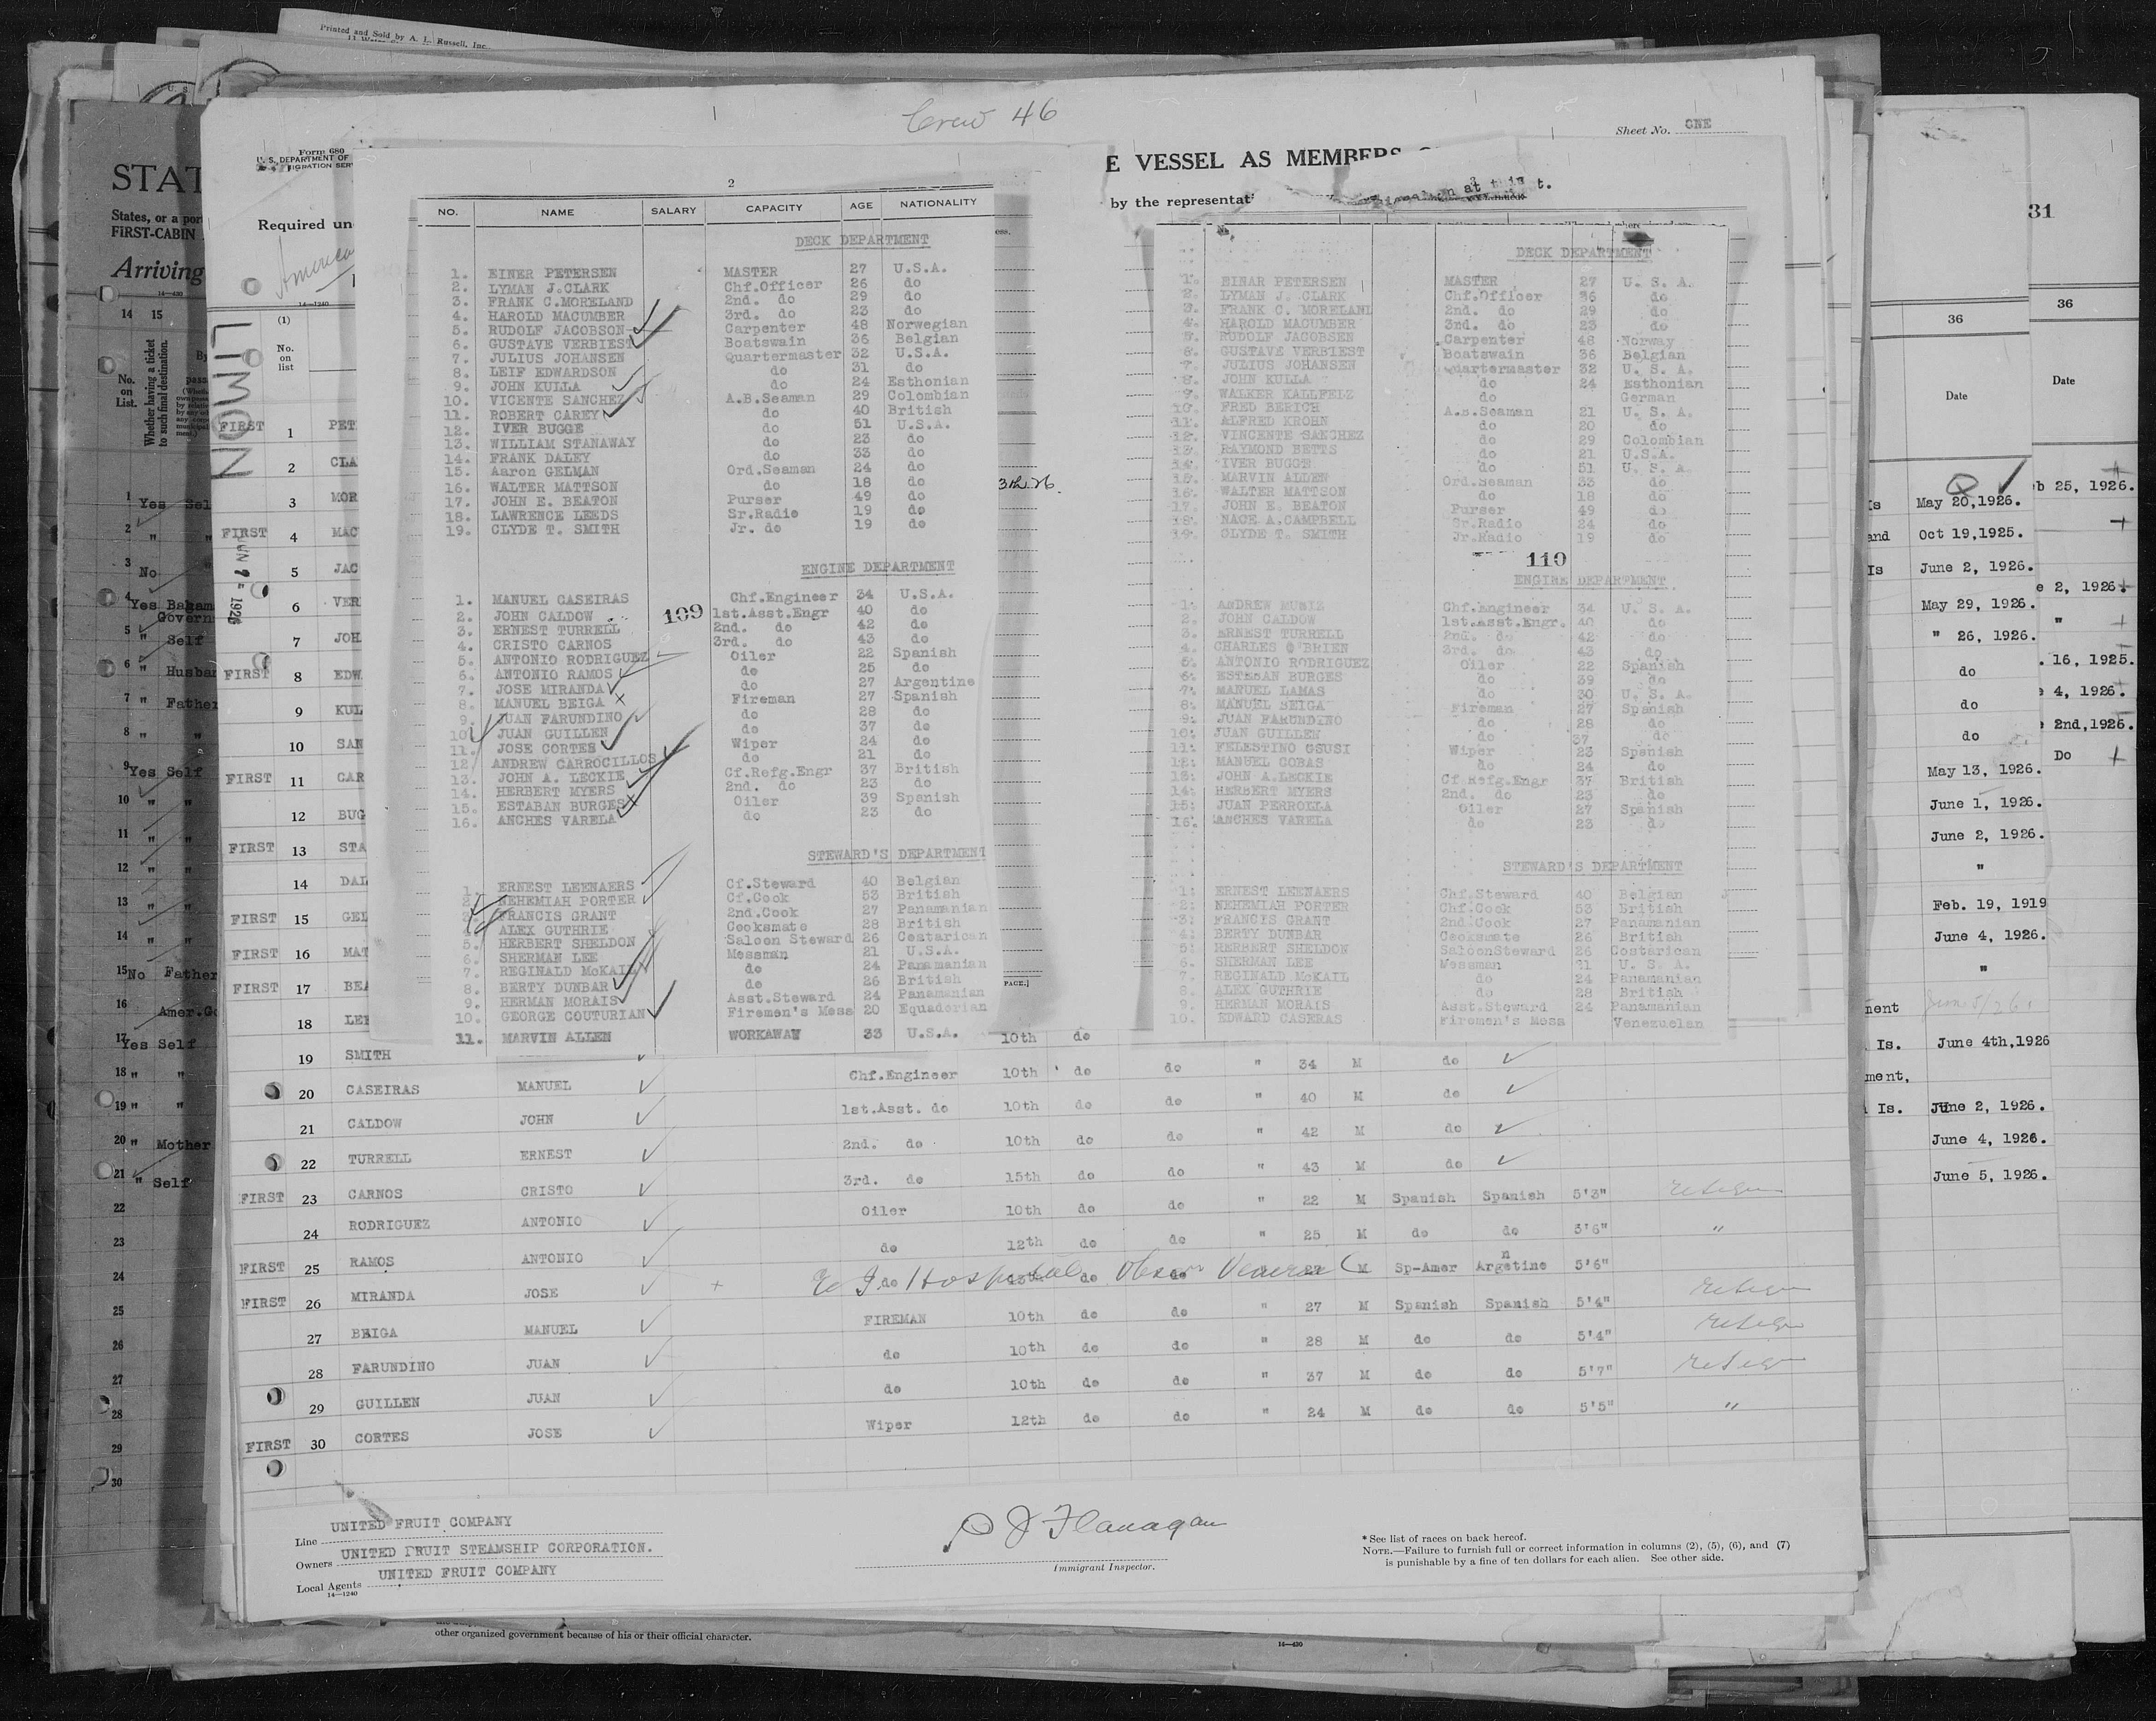 Printed and Sold by A. L. Russell, Inc.
Crew 46
Sheet No. ONE
Form 680
U. S. DEPARTMENT OF
IGRATION SER
Required un
E VESSEL AS MEMBERS
by the representat
at this
t.
STAT
States, or a por
FIRST-CABIN
Arriving
14—430
14—1240
LIMON
2
NO. NAME SALARY CAPACITY AGE NATIONALITY
DECK DEPARTMENT
1. EINER PETERSEN MASTER 27 U.S.A.
2. LYMAN J.CLARK Chf.Officer 26 do
3. FRANK C.MORELAND 2nd. do 29 do
4. HAROLD MACUMBER 3rd. do 23 do
5. RUDOLF JACOBSON Carpenter 48 Norwegian
6. GUSTAVE VERBIEST Boatswain 36 Belgian
7. JULIUS JOHANSEN Quartermaster 32 U.S.A.
8. LEIF EDWARDSON do 31 do
9. JOHN KULLA do 24 Esthonian
10. VICENTE SANCHEZ A.B.Seaman 29 Colombian
11. ROBERT CAREY do 40 British
12. IVER BUGGE do 51 U.S.A.
13. WILLIAM STANAWAY do 23 do
14. FRANK DALEY do 33 do
15. Aaron GELMAN Ord.Seaman 24 do
16. WALTER MATTSON do 18 do
17. JOHN E. BEATON Purser 49 do
18. LAWRENCE LEEDS Sr.Radio 19 do
19. CLYDE T. SMITH Jr. do 19 do
ENGINE DEPARTMENT
109
1. MANUEL CASEIRAS Chf.Engineer 34 U.S.A.
2. JOHN CALDOW 1st.Asst.Engr 40 do
3. ERNEST TURRELL 2nd. do 42 do
4. CRISTO CARNOS 3rd. do 43 do
5. ANTONIO RODRIGUEZ Oiler 22 Spanish
6. ANTONIO RAMOS do 25 do
7. JOSE MIRANDA do 27 Argentine
8. MANUEL BEIGA Fireman 27 Spanish
9. JUAN FARUNDINO do 28 do
10. JUAN GUILLEN do 37 do
11. JOSE CORTES Wiper 24 do
12. ANDREW CARROCILLOS do 21 do
13. JOHN A. LECKIE Cf.Refg.Engr 37 British
14. HERBERT MYERS 2nd. do 23 do
15. ESTABAN BURGES Oiler 39 Spanish
16. ANCHES VARELA do 23 do
STEWARD'S DEPARTMENT
1. ERNEST LEENAERS Cf.Steward 40 Belgian
2. NEHEMIAH PORTER Cf.Cook 53 British
3. FRANCIS GRANT 2nd.Cook 27 Panamanian
4. ALEX GUTHRIE Cooksmate 28 British
5. HERBERT SHELDON Saloon Steward 26 Costarican
6. SHERMAN LEE Messman 21 U.S.A.
7. REGINALD McKAIL do 24 Panamanian
8. BERTY DUNBAR do 26 British
9. HERMAN MORAIS Asst.Steward 24 Panamanian
10. GEORGE COUTURIAN Firemen's Mess 20 Equadorian
11. MARVIN ALLEN WORKAWAY 33 U.S.A.
DECK DEPARTMENT
1. EINAR PETERSEN MASTER 27 U. S. A.
2. LYMAN J. CLARK Chf.Officer 36 do
3. FRANK C. MORELAND 2nd. do 29 do
4. HAROLD MACUMBER 3nd. do 23 do
5. RUDOLF JACOBSEN Carpenter 48 Norway
6. GUSTAVE VERBIEST Boatswain 36 Belgian
7. JULIUS JOHANSEN Quartermaster 32 U. S. A.
8. JOHN KULLA do 24 Esthonian
9. WALKER KALLFELZ do German
10. FRED BERICH A.B.Seaman 21 U. S. A.
11. ALFRED KROHN do 20 do
12. VINCENTE SANCHEZ do 29 Colombian
13. RAYMOND BETTS do 21 U.S.A.
14. IVER BUGGE do 51 U. S. A.
15. MARVIN ALLEN Ord.Seaman 33 do
16. WALTER MATTSON do 18 do
17. JOHN E. BEATON Purser 49 do
18. NACE A.CAMPBELL Sr.Radio 24 do
19. CLYDE T. SMITH Jr.Radio 19 do
110
ENGINE DEPARTMENT
1. ANDREW MUNIZ Chf.Engineer 34 U. S. A.
2. JOHN CALDOW 1st.Asst.Engr. 40 do
3. ERNEST TURRELL 2nd. do 42 do
4. CHARLES O'BRIEN 3rd. do 43 do
5. ANTONIO RODRIGUEZ Oiler 22 Spanish
6. ESTEBAN BURGES do 39 do
7. MANUEL LAMAS do 30 U. S. A.
8. MANUEL BEIGA Fireman 27 Spanish
9. JUAN FARUNDINO do 28 do
10. JUAN GUILLEN do 37 do
11. FELESTINO GSUSI Wiper 23 Spanish
12. MANUEL COBAS do 24 do
13. JOHN A.LECKIE Cf.Refg.Engr 37 British
14. HERBERT MYERS 2nd. do 23 do
15. JUAN PERROLLA Oiler 27 Spanish
16. ANCHES VARELA do 23 do
STEWARD'S DEPARTMENT
1. ERNEST LEENAERS Chf.Steward 40 Belgian
2. NEHEMIAH PORTER Chf.Cook 53 British
3. FRANCIS GRANT 2nd.Cook 27 Panamanian
4. BERTY DUNBAR Cooksmate 26 British
5. HERBERT SHELDON SaloonSteward 26 Costarican
6. SHERMAN LEE Messman 21 U. S. A.
7. REGINALD McKAIL do 24 Panamanian
8. ALEX GUTHRIE do 28 British
9. HERMAN MORAIS Asst.Steward 24 Panamanian
10. EDWARD CASERAS Firemen's Mess Venezuelan
(1)
No. on list
FIRST 1 PET
2 CLA
3 MOR
FIRST 4 MAC
5 JAC
6 VER
7 JOH
FIRST 8 EDW
9 KUL
10 SAN
FIRST 11 CAR
12 BUG
FIRST 13 STA
14 DAL
FIRST 15 GEL
FIRST 16 MAT
FIRST 17 BEA
18 LEE
19 SMITH 10th do
20 CASEIRAS MANUEL Chf.Engineer 10th do do " 34 M do
21 CALDOW JOHN 1st.Asst. do 10th do do " 40 M do
22 TURRELL ERNEST 2nd. do 10th do do " 42 M do
FIRST 23 CARNOS CRISTO 3rd. do 15th do do " 43 M do
24 RODRIGUEZ ANTONIO Oiler 10th do do " 22 M Spanish Spanish 5'3"
FIRST 25 RAMOS ANTONIO do 12th do do " 25 M do do 5'6" "
FIRST 26 MIRANDA JOSE do do M Sp-Amer Argetine 5'6"
27 BEIGA MANUEL FIREMAN 10th do do " 27 M Spanish Spanish 5'4"
28 FARUNDINO JUAN do 10th do do " 28 M do do 5'4"
29 GUILLEN JUAN do 10th do do " 37 M do do 5'7"
FIRST 30 CORTES JOSE Wiper 12th do do " 24 M do do 5'5" "
Line UNITED FRUIT COMPANY
Owners UNITED FRUIT STEAMSHIP CORPORATION.
Local Agents UNITED FRUIT COMPANY
14—1240
P J Flanagan
Immigrant Inspector.
* See list of races on back hereof.
NOTE.—Failure to furnish full or correct information in columns (2), (5), (6), and (7)
is punishable by a fine of ten dollars for each alien. See other side.
other organized government because of his or their official character.
14—430
14 15
No. on List.
Whether having a ticket to such final destination.
1 Yes Sel
2 " "
3 No
4 Yes Baham
Govern
5 " Self
6 " Husban
7 " Father
8 " "
9 Yes Self
10 " "
11 " "
12 " "
13 " "
14 " "
15 No Father
16 Amer.Go
17 Yes Self
18 " "
19 " "
20 " Mother
21 " Self
22
23
24
25
26
27
28
29
30
31
36
Date
36
Date
May 20,1926.
Oct 19,1925.
June 2, 1926.
May 29, 1926.
" 26, 1926.
do
do
do
May 13, 1926.
June 1, 1926.
June 2, 1926.
"
Feb. 19, 1919
June 4, 1926.
"
Is. June 4th,1926
ment,
Is. June 2, 1926.
June 4, 1926.
June 5, 1926.
b 25, 1926.
e 2, 1926
"
. 16, 1925.
e 4, 1926.
e 2nd,1926.
Do